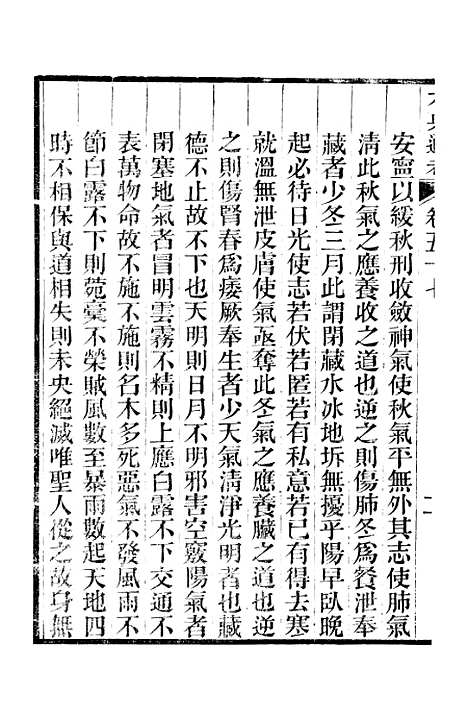 安寧以緩秋刑收斂神氣使秋氣平無外其志使肺氣
清此秋氣之應養收之道也逆之則傷肺冬爲飱泄奉
藏者少冬三月此謂閉藏水冰地坼無擾乎陽早臥晚
起必待日光使志若伏若匿若有私意若已有得去寒
就溫無泄皮膚使氣亟奪此冬氣之應養臟之道也逆
之則傷腎春爲痿厥奉生者少天氣清淨光明者也藏
德不止故不下也天明則日月不明邪害空竅陽氣者
閉塞地氣者冒明雲霧不精則上應白露不下交通不
表萬物命故不施不施則名木多死惡氣不發風雨不
節白露不下則菀稾不榮賊風數至暴雨數起天地四
時不相保與道相失則未央絕滅唯聖人從之故身無
卷五十七